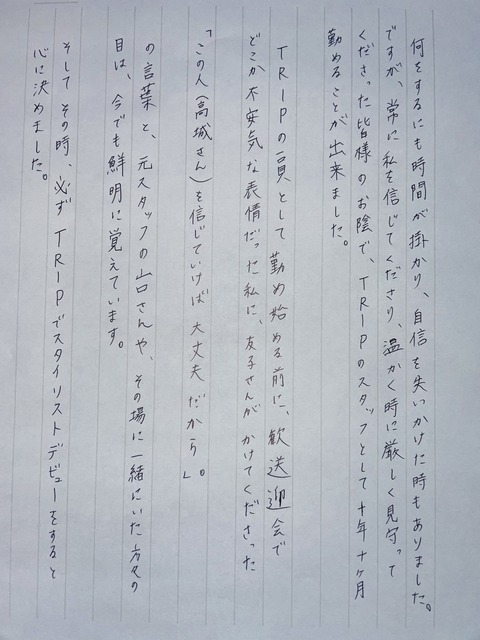 何をするにも時間が掛かり、自信を失いかけた時もありました。
ですが、常に私を信じてくださり、温かく時に厳しく見守って
くださった皆様のお陰で、TRIPのスタッフとして十年十ヶ月
勤めることが出来ました。
TRIPの一員として勤め始める前に、歓送迎会で
どこか不安気な表情だった私に、友子さんがかけてくださった
「この人(高城さん)を信じていけば大丈夫だから」。
の言葉と、元スタッフの山口さんや、その場に一緒にいた方々の
目は、今でも鮮明に覚えています。
そしてその時、必ずTRIPでスタイリストデビューをすると
心に決めました。